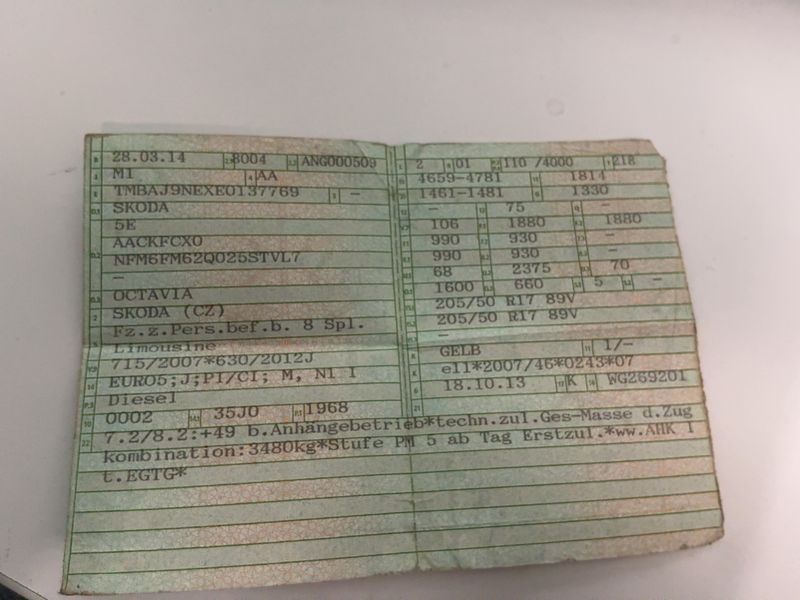 28.03.14 8004 ANG000509
M1 AA
TMBAJ9NEXE0137769 –
SKODA
5E
AACKFCX0
NFM6FM62Q025STVL7
–
OCTAVIA
SKODA (CZ)
Fz.z.Pers.bef.b. 8 Spl.
Limousine
715/2007*630/2012J
EURO5;J;PI/CI; M, N1 I
Diesel
0002 35J0 1968
2 01 110 /4000 218
4659-4781 1814
1461-1481 1330
– 75 –
106 1880 1880
990 930 –
990 930 –
68 2375 70
1600 660 5 –
205/50 R17 89V
205/50 R17 89V
–
GELB 1/–
e11*2007/46*0243*07
18.10.13 K WG269201
7.2/8.2:+49 b.Anhängebetrieb*techn.zul.Ges-Masse d.Zug
kombination:3480kg*Stufe PM 5 ab Tag Erstzul.*ww.AHK l
t.EGTG*